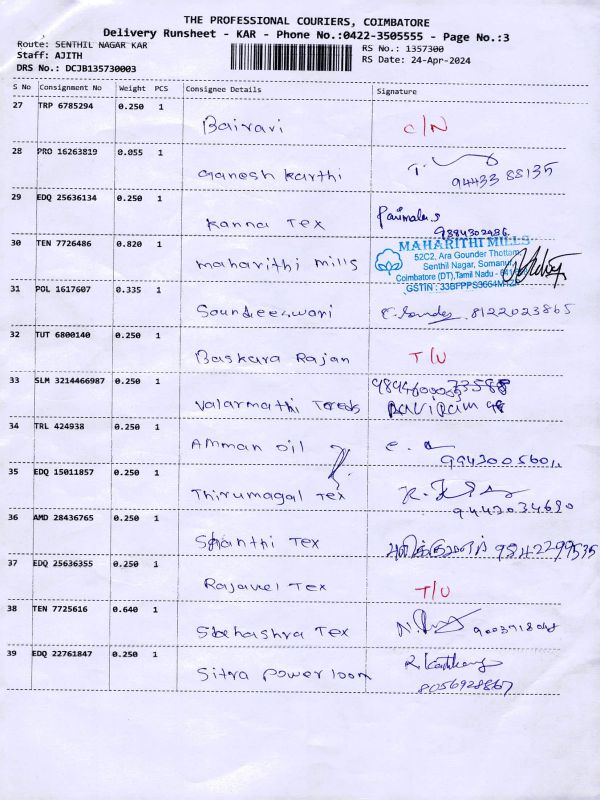 THE PROFESSIONAL COURIERS, COIMBATORE
Delivery Runsheet - KAR - Phone No.:0422-3505555 - Page No.:3
Route: SENTHIL NAGAR KAR
Staff: AJITH
DRS No.: DCJB135730003
RS No.: 1357300
RS Date: 24-Apr-2024
S No Consignment No Weight PCS Consignee Details Signature
27 TRP 6785294 0.250 1
Bairavi C/N
28 PRO 16263819 0.055 1
Ganesh Karthi T. 94433 88135
29 EDQ 25636134 0.250 1
Kanna Tex Parimala.s
9884302486
30 TEN 7726486 0.820 1
Maharithi mills
MAHARITHI MILLS
52C2, Ara Gounder Thottam,
Senthil Nagar, Somanur,
Coimbatore (DT),Tamil Nadu -
GSTIN : 
31 POL 1617607 0.335 1
Soundeeswari 8122023865
32 TUT 6800140 0.250 1
Baskara Rajan T/U
33 SLM 3214466987 0.250 1
Valarmathi
34 TRL 424938 0.250 1
Amman oil
35 EDQ 15011857 0.250 1
Thirumagal Tex 9442034680
36 AMD 28436765 0.250 1
Shanthi Tex 9842299535
37 EDQ 25636355 0.250 1
Rajavel Tex T/U
38 TEN 7725616 0.640 1
Tex
39 EDQ 22761847 0.250 1
Sitra powerloom
8056928867